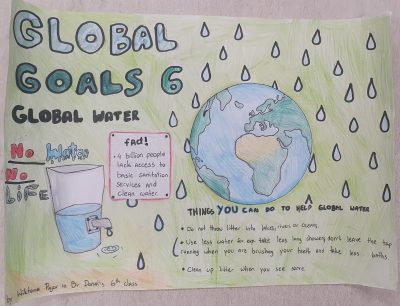 GLOBAL
GOALS 6
GLOBAL WATER
No Water
No
LiFe
fact!
• 4 billion people
lack access to
basic sanitation
services and
clean water.
THINGS YOU CAN DO TO HELP GLOBAL WATER
• Do not throw litter into lakes, rivers or oceans.
• Use less water for exp take less long showers, don't leave the tap
running when you are brushing your teeth and take less baths.
• Clean up litter when you see some.
by in Br Donal's 6th class